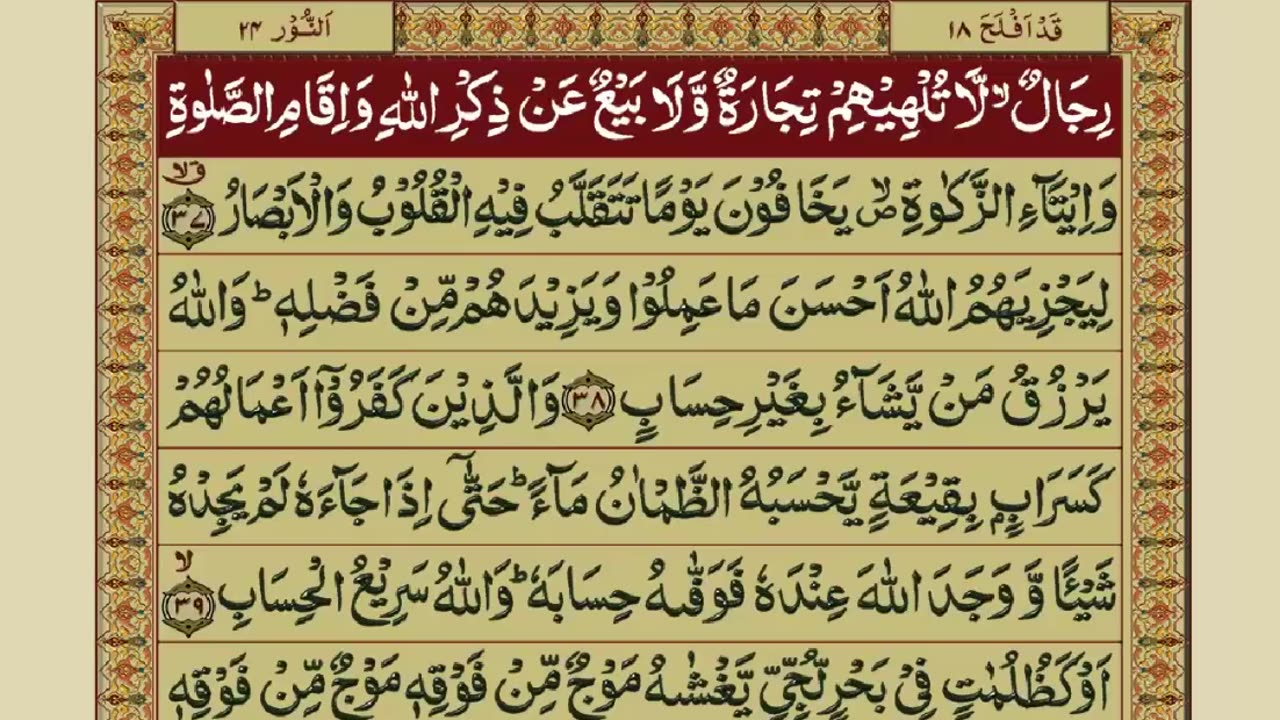 قَدْ اَفْلَحَ ۱۸
اَلنُّوْر ۲۴
رِجَالٌ ۙ لَّا تُلْهِیْهِمْ تِجَارَةٌ وَّلَا بَیْعٌ عَنْ ذِكْرِ اللّٰهِ وَاِقَامِ الصَّلٰوةِ
وَاِیْتَآءِ الزَّكٰوةِ ۪ۙ یَخَافُوْنَ یَوْمًا تَتَقَلَّبُ فِیْهِ الْقُلُوْبُ وَالْاَبْصَارُ ۟ۙق ﴿۳۷﴾
لِیَجْزِیَهُمُ اللّٰهُ اَحْسَنَ مَا عَمِلُوْا وَیَزِیْدَهُمْ مِّنْ فَضْلِهٖ ؕ وَاللّٰهُ
یَرْزُقُ مَنْ یَّشَآءُ بِغَیْرِ حِسَابٍ ﴿۳۸﴾ وَالَّذِیْنَ كَفَرُوْۤا اَعْمَالُهُمْ
كَسَرَابٍۭ بِقِیْعَةٍ یَّحْسَبُهُ الظَّمْاٰنُ مَآءً ؕ حَتّٰۤی اِذَا جَآءَهٗ لَمْ یَجِدْهُ
شَیْـًٔا وَّ وَجَدَ اللّٰهَ عِنْدَهٗ فَوَفّٰىهُ حِسَابَهٗ ؕ وَاللّٰهُ سَرِیْعُ الْحِسَابِ ۙ ﴿۳۹﴾
اَوْ كَظُلُمٰتٍ فِیْ بَحْرٍ لُّجِّیٍّ یَّغْشٰىهُ مَوْجٌ مِّنْ فَوْقِهٖ مَوْجٌ مِّنْ فَوْقِهٖ